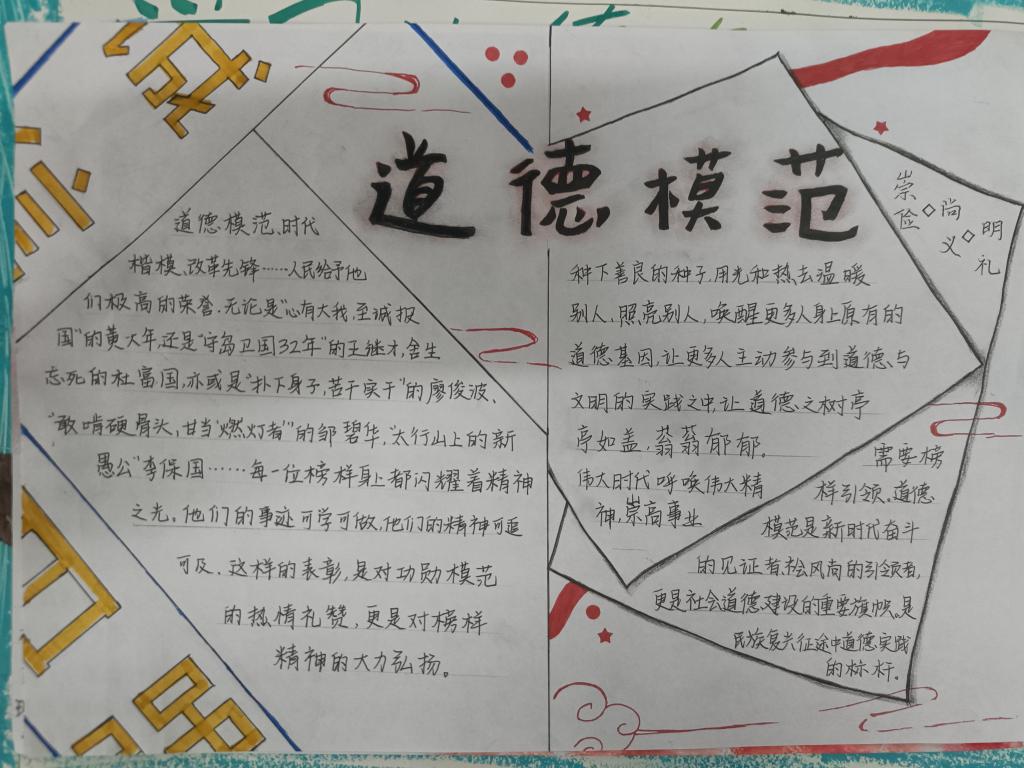 道德模范
道德模范、时代
楷模、改革先锋……人民给予他
们极高的荣誉.无论是"心有大我、至诚报
国"的黄大年,还是"守岛卫国32年"的王继才,舍生
忘死的杜富国,亦或是"扑下身子,苦干实干"的廖俊波、
"敢啃硬骨头,甘当'燃灯者'"的邹碧华,"太行山上的新
愚公"李保国……每一位榜样身上都闪耀着精神
之光。他们的事迹可学可做,他们的精神可追
可及.这样的表彰,是对功勋模范
的热情礼赞,更是对榜样
精神的大力弘扬。
种下善良的种子,用光和热去温暖
别人、照亮别人,唤醒更多人身上原有的
道德基因,让更多人主动参与到道德、与
文明的实践之中,让道德之树亭
亭如盖,蓊蓊郁郁。
伟大时代呼唤伟大精
神,崇高事业
需要榜
样引领、道德
模范是新时代奋斗
的见证者、松风尚的引领者,
更是社会道德建设的重要旗帜、是
民族复兴征途中道德实践
的标杆.
崇俭◇尚义◇明礼